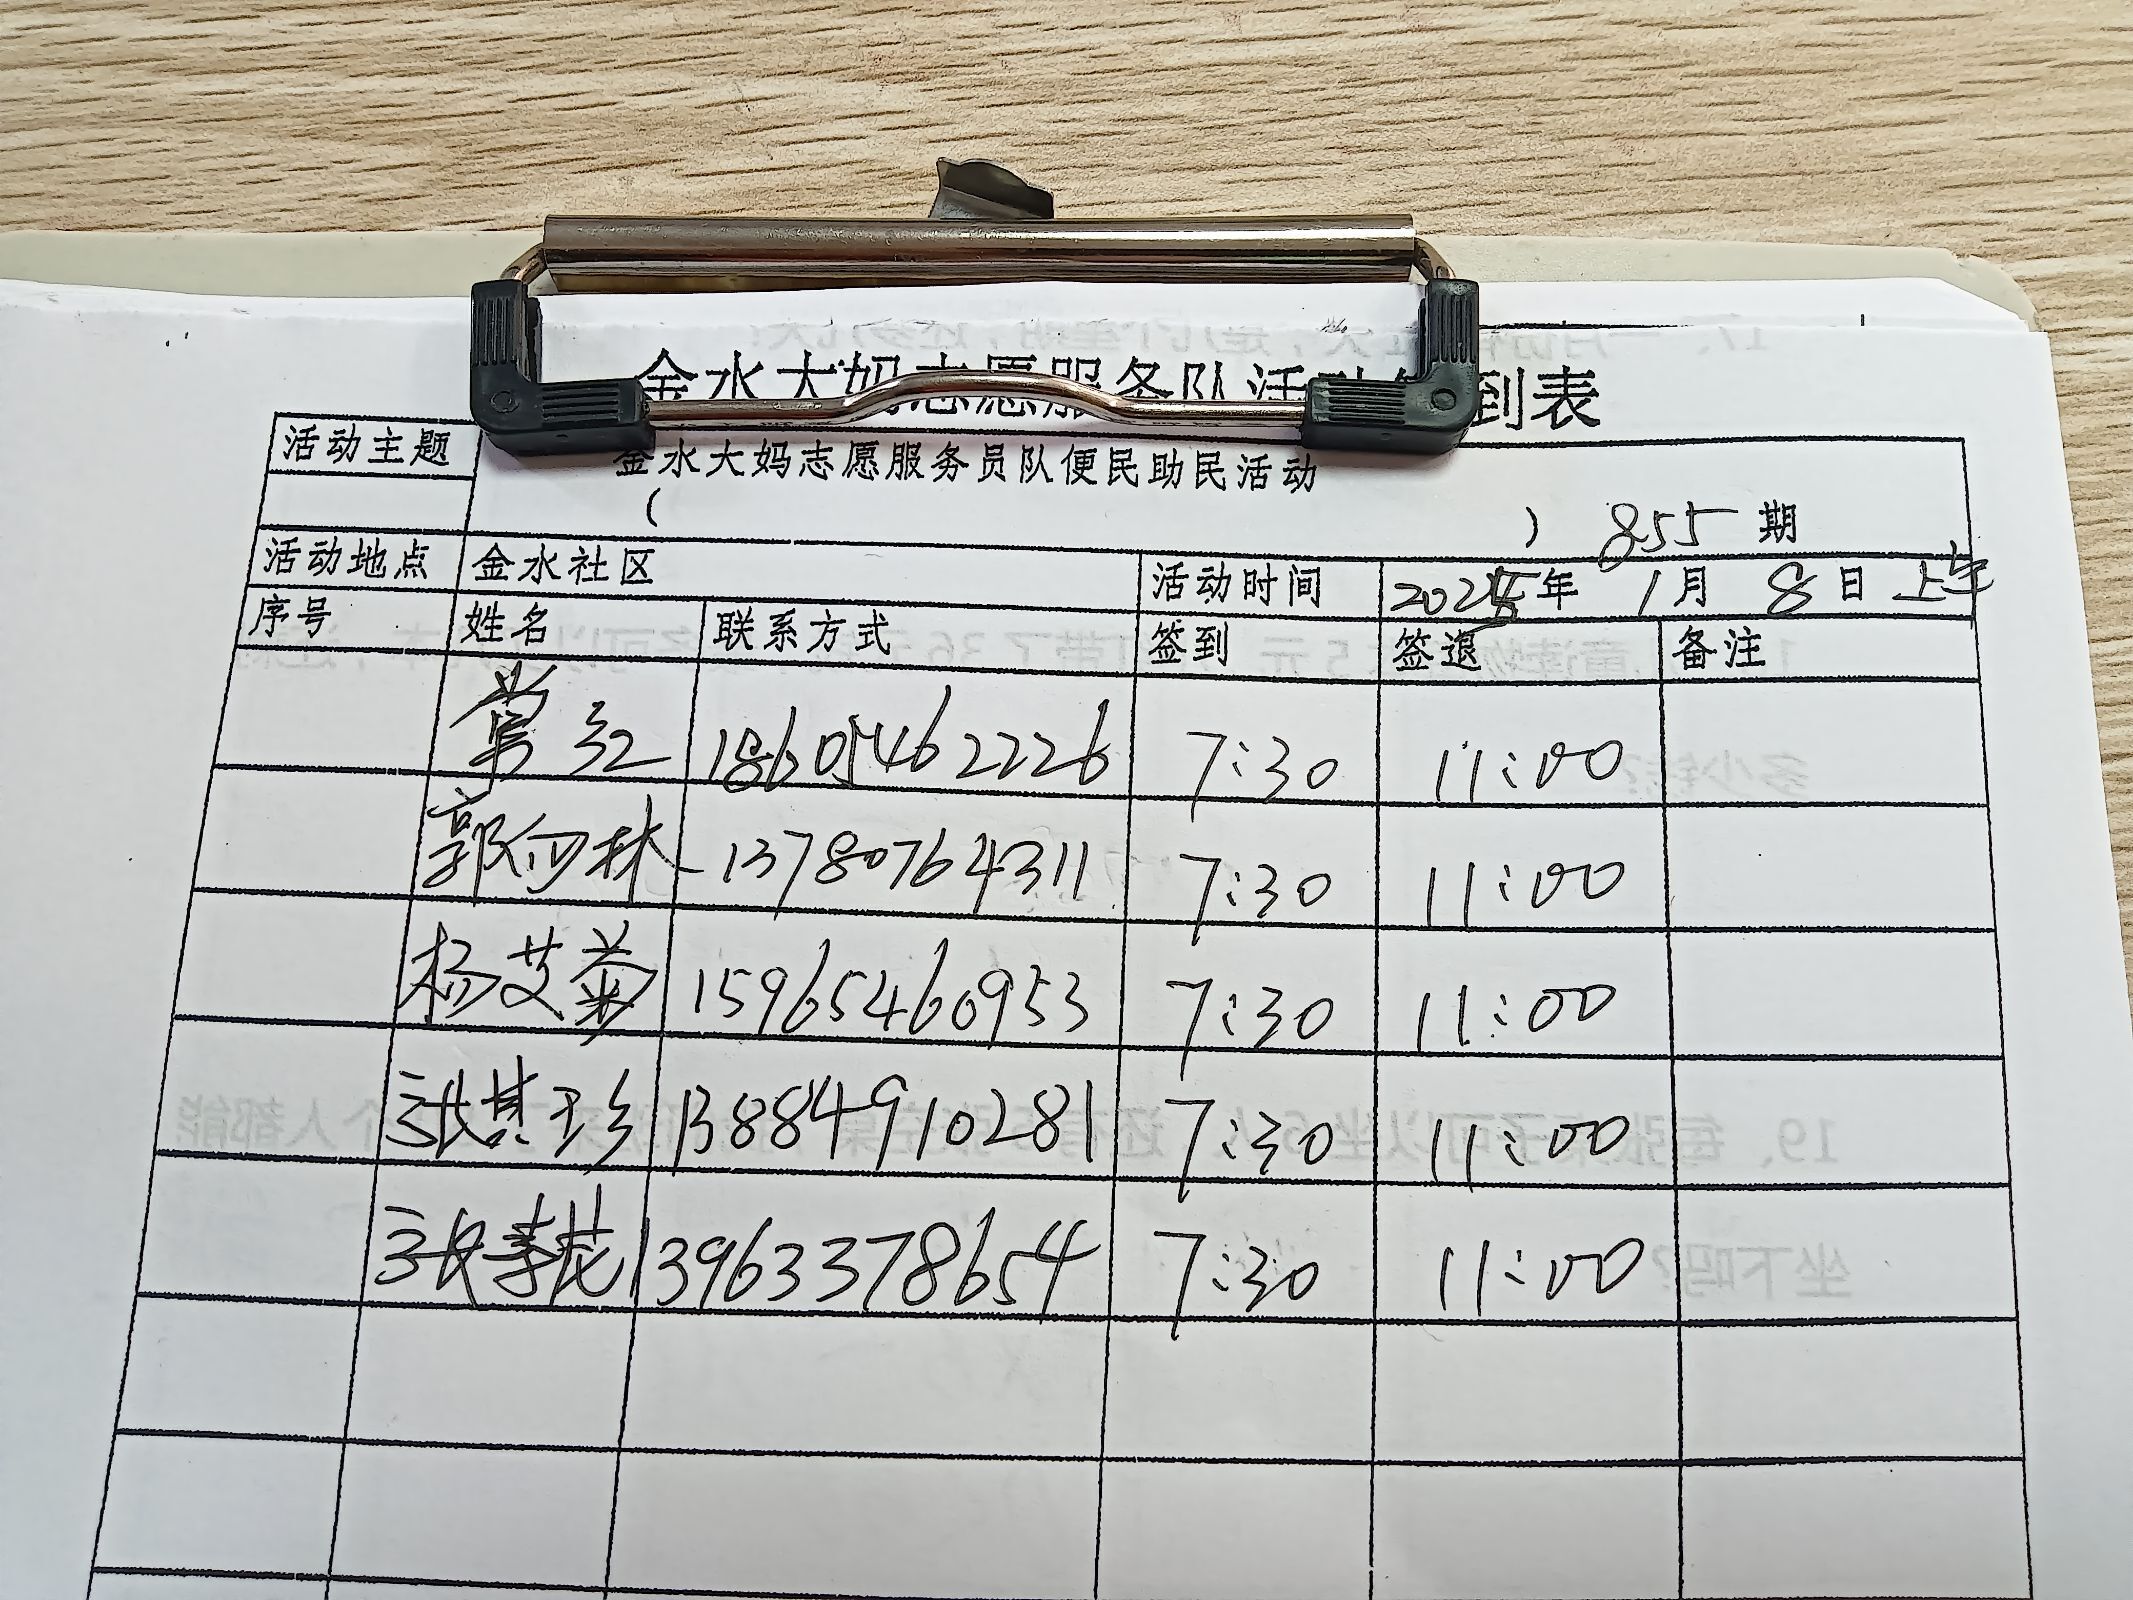 金水大妈志愿服务队活动签到表
活动主题
金水大妈志愿服务员队便民助民活动
( ) 855期
活动地点 金水社区 活动时间 2025年 1月 8日 上午
序号 姓名 联系方式 签到 签退 备注
常红 18605462226 7:30 11:00
郭向林 13780764311 7:30 11:00
杨艾菊 15965460953 7:30 11:00
张其珍 13884910281 7:30 11:00
张春花 13963378654 7:30 11:00